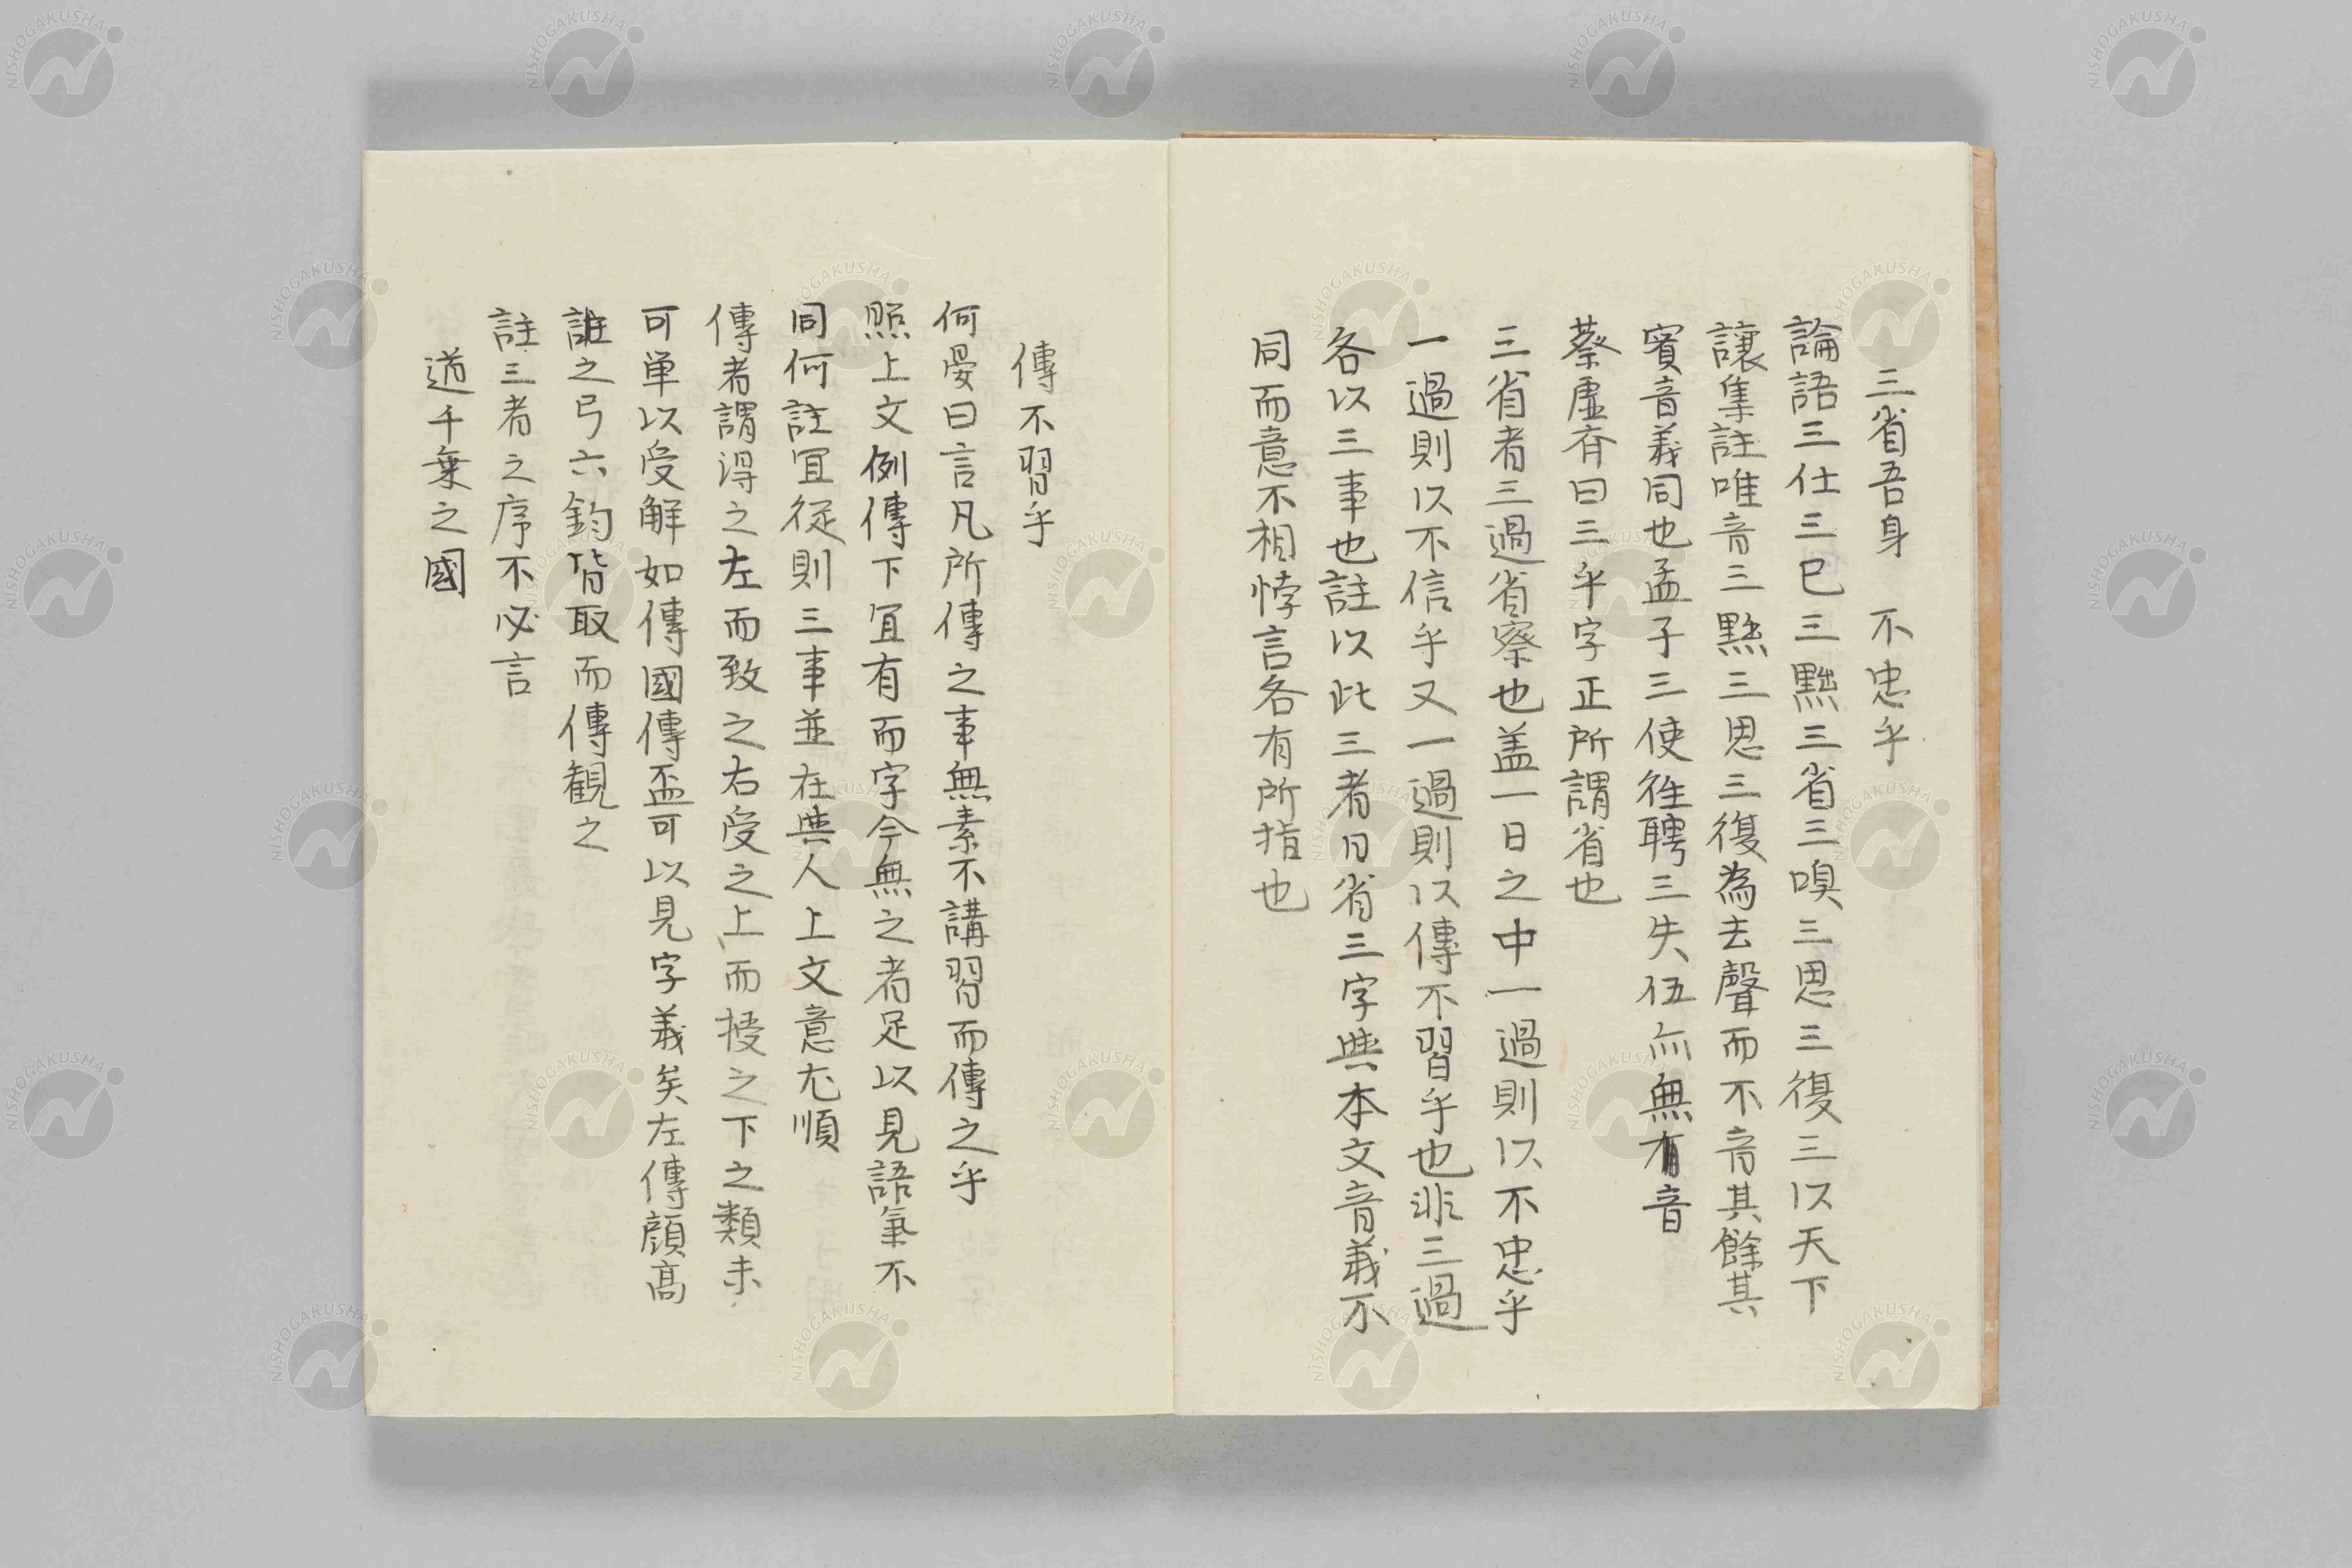 三省吾身　不忠乎
論語三仕三巳三黜三省三嗅三思三復三以天下
讓集註唯音三黜三思三復為去聲而不音其餘其
賓音義同也孟子三使徃聘三失伍亦無有音
蔡虚斉曰三乎字正所謂省也
三省者三過省察也盖一日之中一過則以不忠乎
一過則以不信乎又一過則以傳不習乎也非三過
各以三事也註以此三者日省三字與本文音義不
同而意不相悖言各有所指也
傳不習乎
何晏曰言凡所傳之事無素不講習而傳之乎
照上文例傳下冝有而字今無之者足以見語氣不
同何註冝従則三事並在與人上文意尤順
傳者謂得之左而致之右受之上而授之下之類未
可単以受解如傳國傳盃可以見字義矣左傳顔高
之弓六鈞皆取而傳観之
註三者之序不必言
道千乗之國
NISHOGAKUSHA